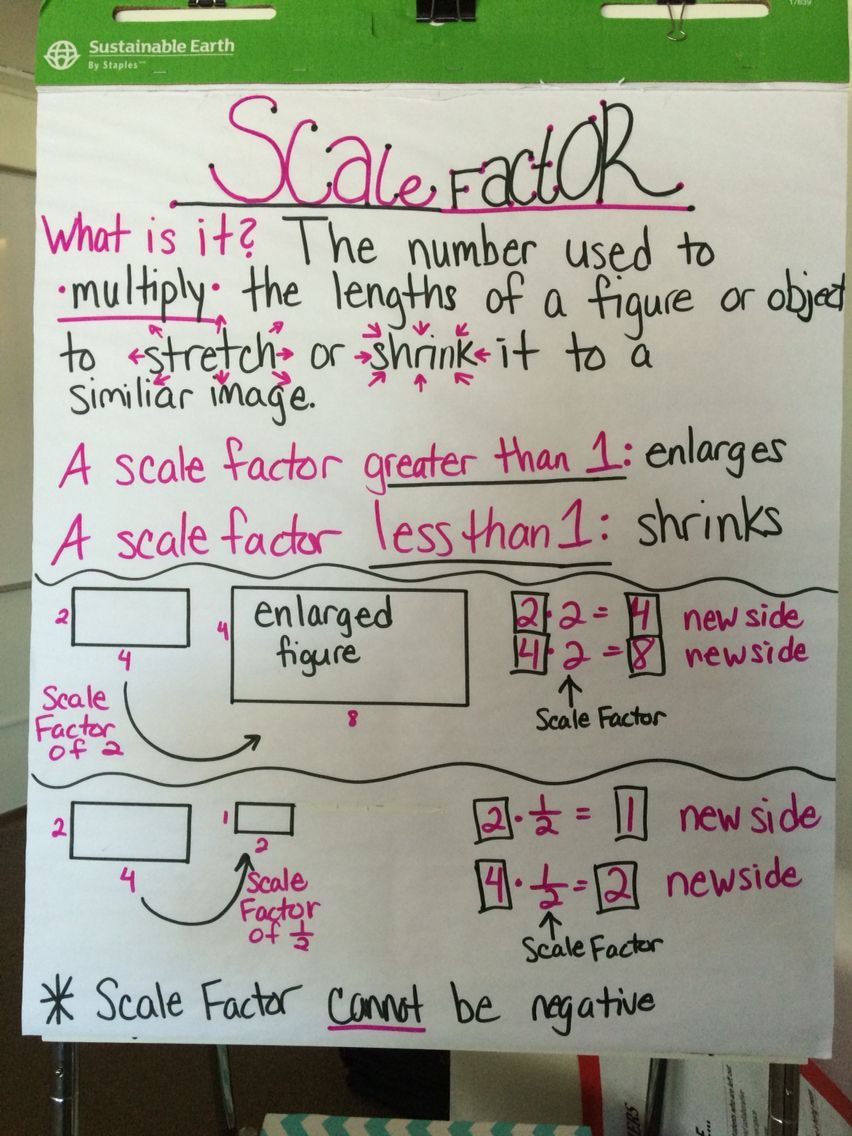 17639
Sustainable Earth
By Staples™
Scale Factor
What is it? The number used to
•multiply• the lengths of a figure or object
to stretch or shrink it to a
similiar image.
A scale factor greater than 1: enlarges
A scale factor less than 1: shrinks
2
4
4
enlarged
figure
8
2 · 2 = 4 new side
4 · 2 = 8 new side
Scale Factor
Scale
Factor
of 2
2
4
1
2
2 · 1/2 = 1 new side
4 · 1/2 = 2 new side
Scale Factor
Scale
Factor
of 1/2
* Scale Factor cannot be negative